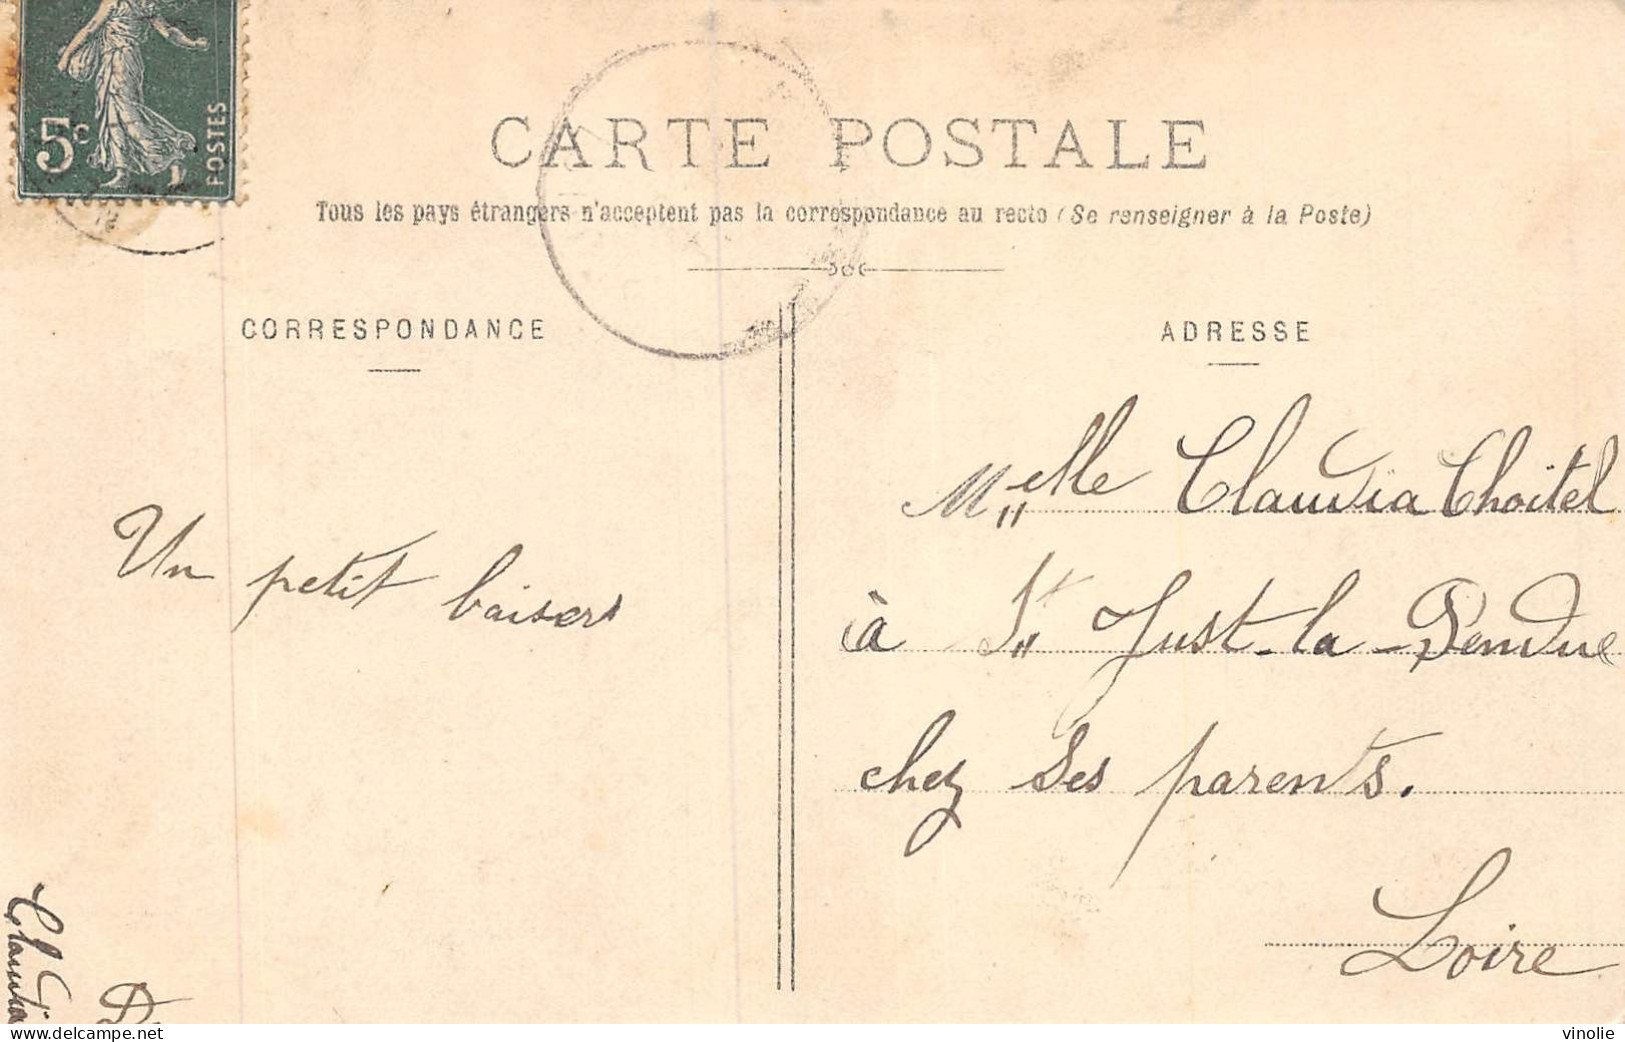 5c
POSTES
CARTE POSTALE
Tous les pays étrangers n'acceptent pas la correspondance au recto (Se renseigner à la Poste)
CORRESPONDANCE
Un petit baisers
ADRESSE
Melle Claudia Choitel
à St Just-la-Pendue
chez ses parents.
Loire
Claudia
delcampe.net
vinolie